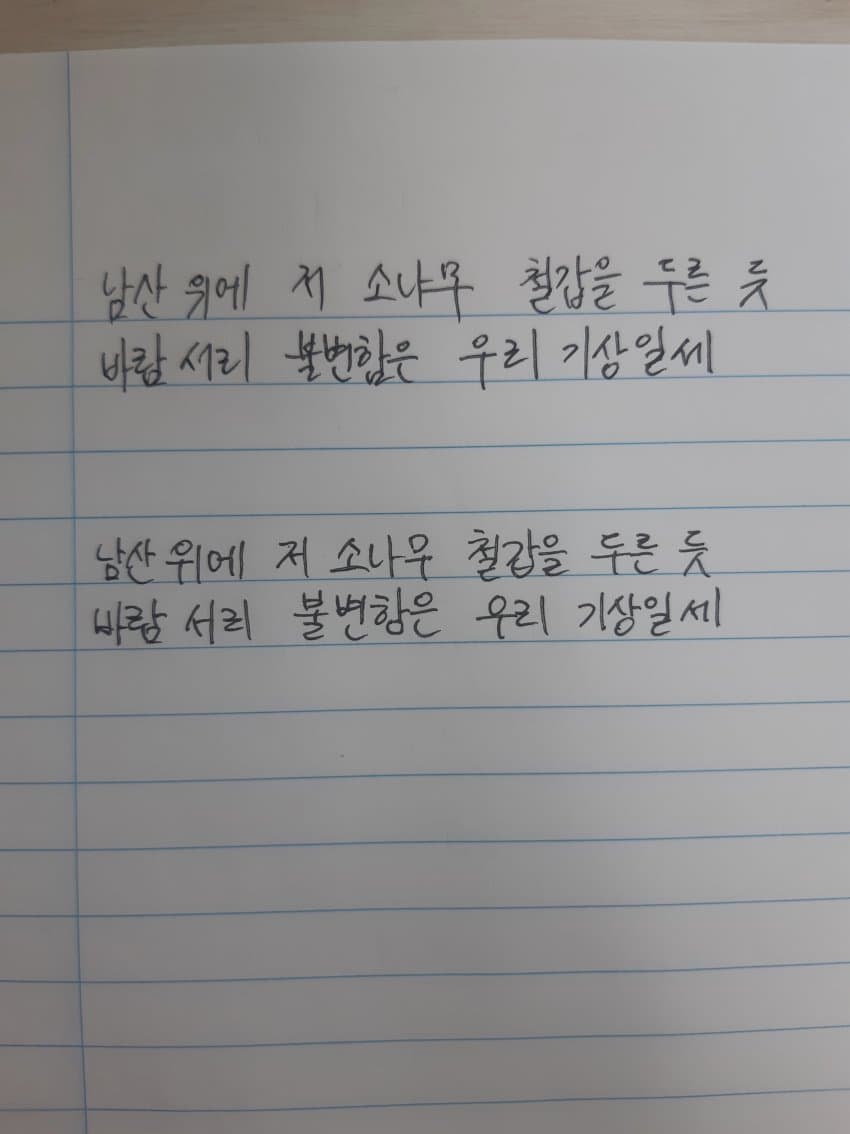 남산 위에 저 소나무 철갑을 두른 듯
바람 서리 불변함은 우리 기상일세
남산 위에 저 소나무 철갑을 두른 듯
바람 서리 불변함은 우리 기상일세